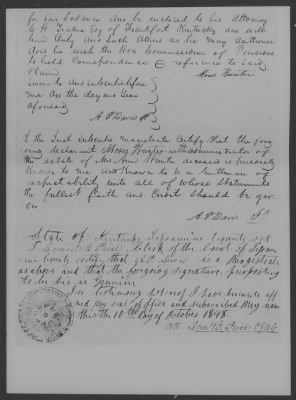 for his balance and be inclosed to his Attorney
C H Frankfort Kentucky and with
him only and such others as he may authorise
does he wish the Hon Commissioner of Pensions
to hold Correspondence reference to said
Claim
Moses Hunter
Sworn to and subscribed before
me on the day and year
aforesaid
A P Davis
I the Just subscribe magistrate Certify that the fore
going declarant Moses administrator of
the estate of Mrs Ann deceased is personally
Known to me and Known to be a Gentleman of
respectability unto all of whose Statements
the fullest faith and credit should be giv
en
A P Davis
State of Kentucky Jessamine County Sct
I Daniel B Price Clerk of the Court of Jessam
ine County Certify that A P Davis is a Magistrate
as above and that the foregoing signature, purporting
to be his is genuine
In testimony whereof I have hereunto aff
ixed my seal of office and subscribed my name
this the 10th Day of October 1848
Att Danl B Price Clk